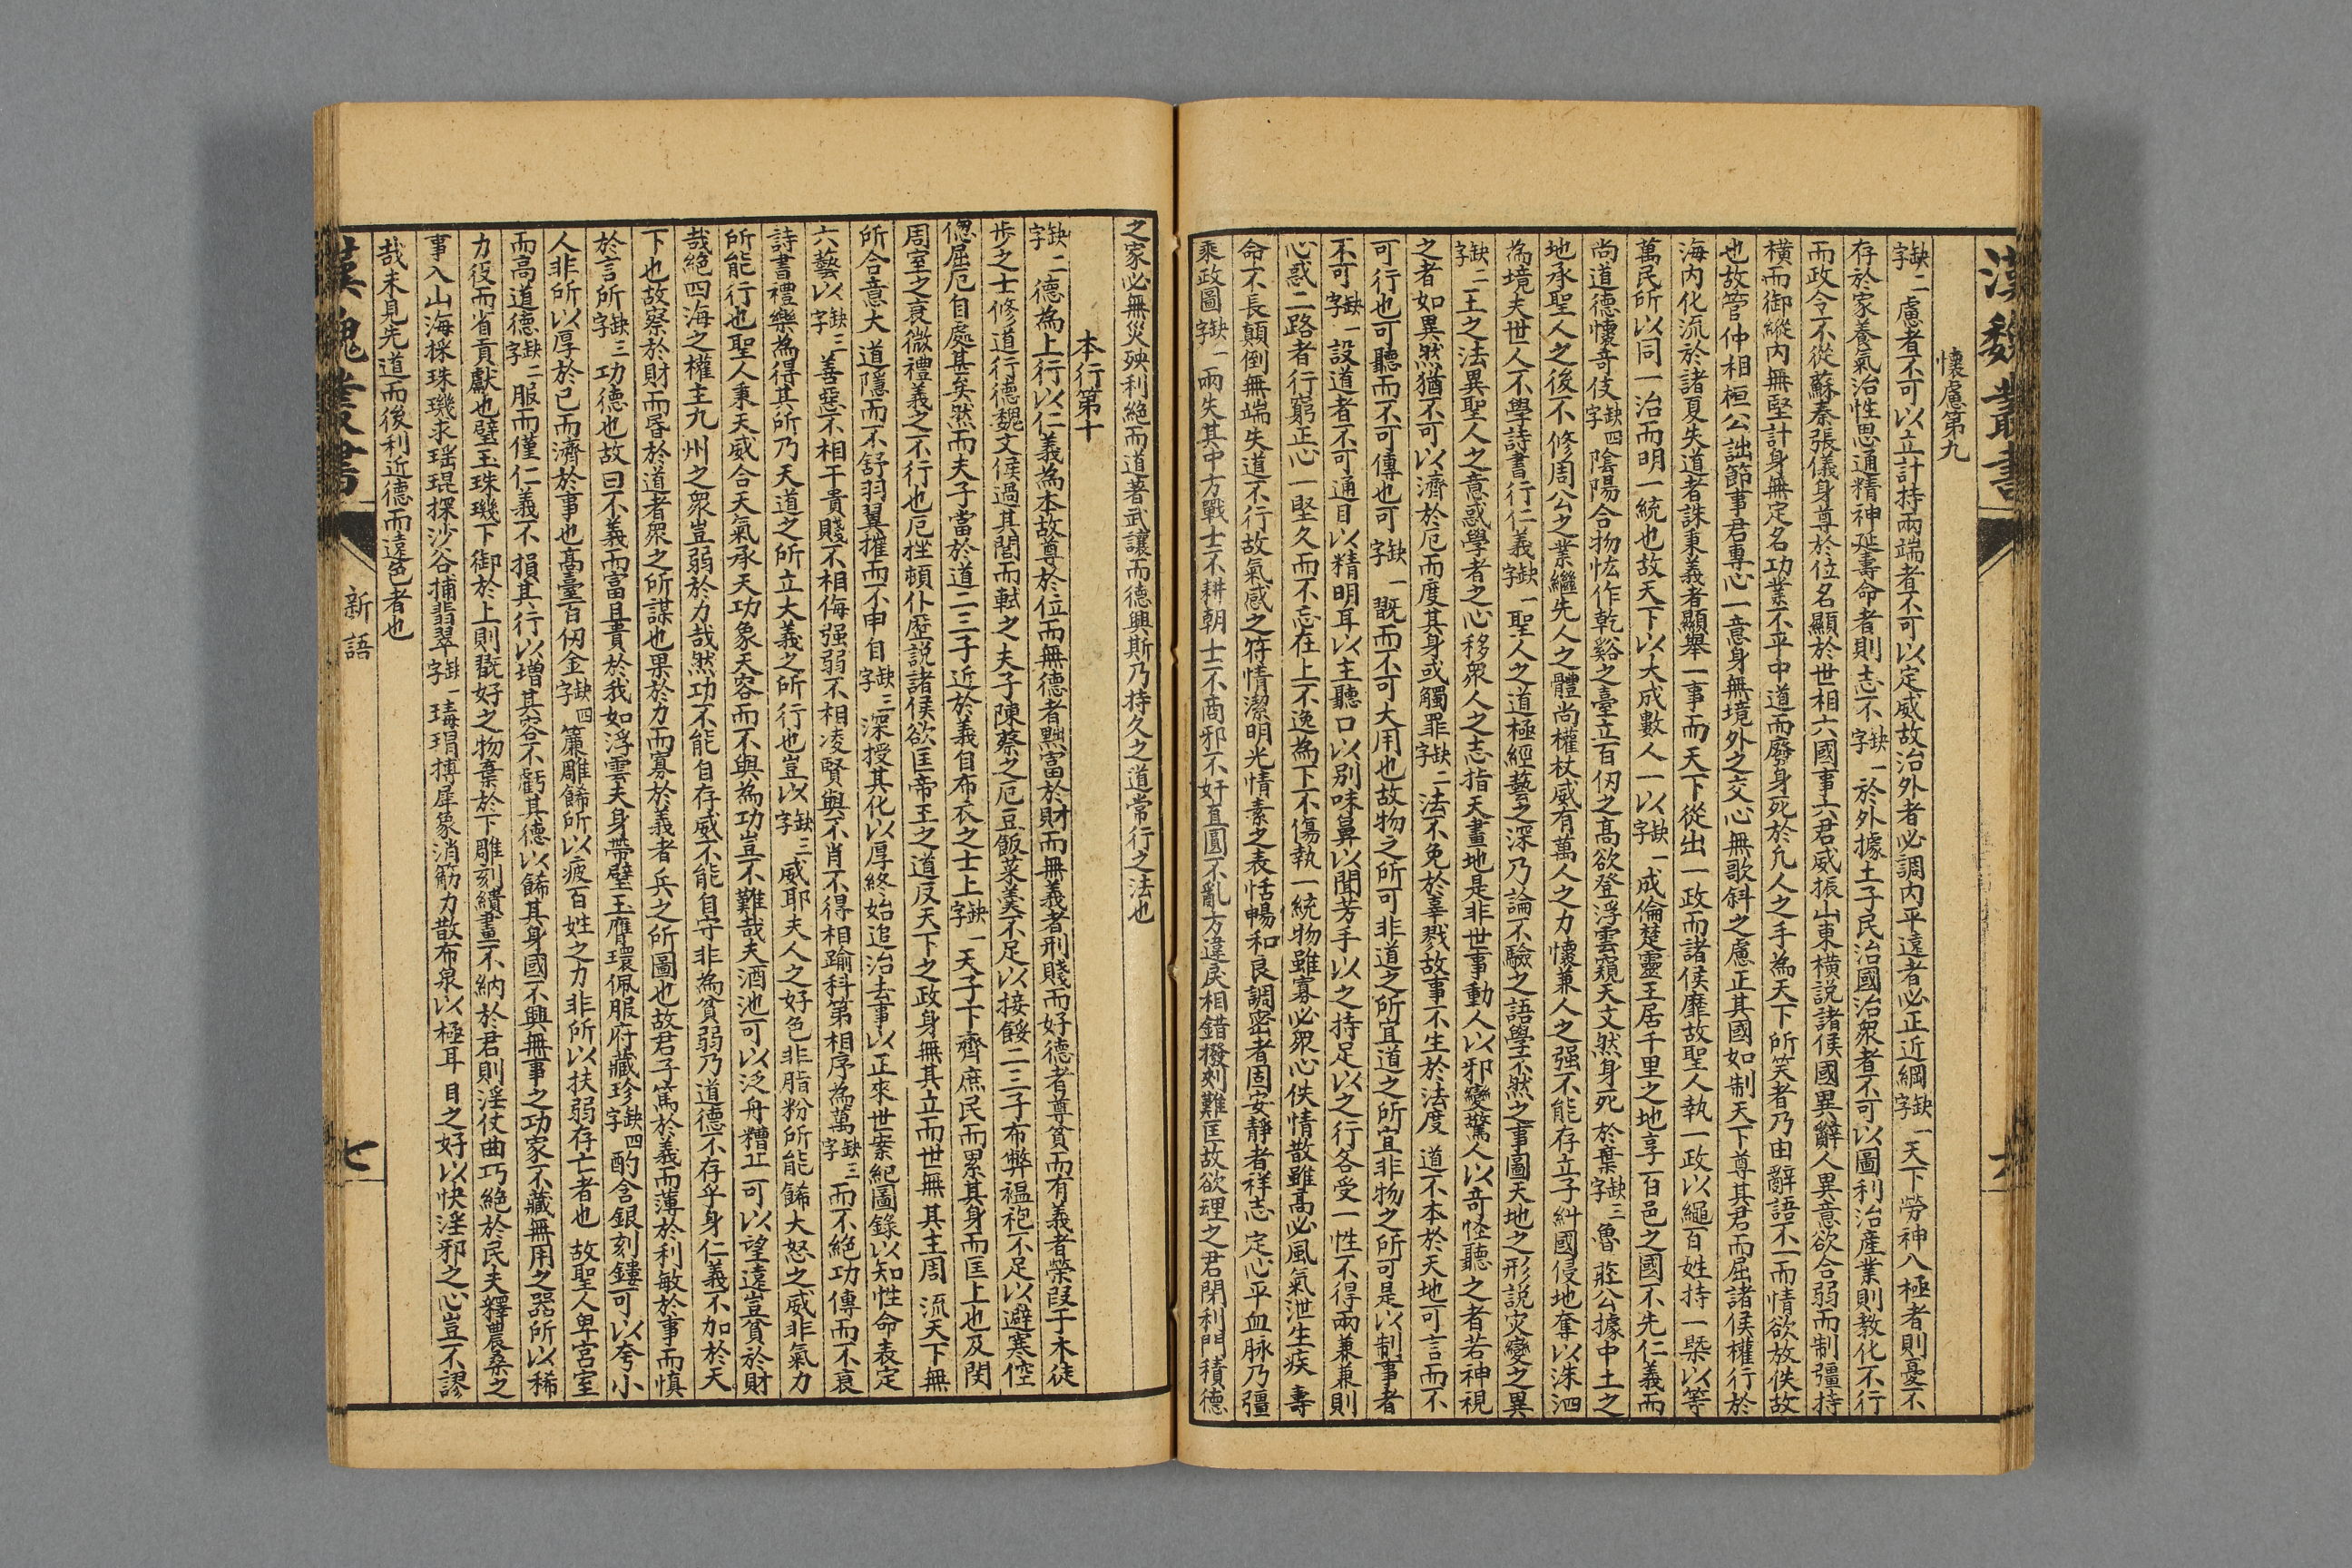 漢魏叢書
懷慮第九
缺二字慮者不可以立計持兩端者不可以定威故治外者必調內平遠者必正近綱缺一字天下勞神八極者則憂不
存於家養氣治性思通精神延壽命者則志不缺一字於外據土子民治國治衆者不可以圖利治產業則教化不行
而政令不從蘇秦張儀身尊於位名顯於世相六國事六君威振山東橫說諸侯國異辭人異意欲合弱而制彊持
橫而御縱內無堅計身無定名功業不平中道而廢身死於凡人之手為天下所笑者乃由辭語不一而情欲放佚故
也故管仲相桓公詘節事君專心一意身無境外之交心無欹斜之慮正其國如制天下尊其君而屈諸侯權行於
海內化流於諸夏失道者誅秉義者顯舉一事而天下從出一政而諸侯靡故聖人執一政以繩百姓持一槩以等
萬民所以同一治而明一統也故天下以大成數人一以缺一字成倫楚靈王居千里之地享百邑之國不先仁義而
尚道德懷奇伎缺四字陰陽合物怪作乾谿之臺立百仞之高欲登浮雲窺天文然身死於棄缺三字魯莊公據中土之
地承聖人之後不修周公之業繼先人之體尚權杖威有萬人之力懷兼人之强不能存立子糾國侵地奪以洙泗
為境夫世人不學詩書行仁義缺一字聖人之道極經藝之深乃論不驗之語學不然之事圖天地之形說灾變之異
缺二字王之法異聖人之意惑學者之心移衆人之志指天畫地是非世事動人以邪變驚人以奇怪聽之者若神視
之者如異然猶不可以濟於厄而度其身或觸罪缺二字法不免於辜戮故事不生於法度道不本於天地可言而不
可行也可聽而不可傳也可缺一字既而不可大用也故物之所可非道之所宜道之所宜非物之所可是以制事者
不可缺一字設道者不可通目以精明耳以主聽口以別味鼻以聞芳手以之持足以之行各受一性不得兩兼兼則
心惑二路者行窮正心一堅久而不忘在上不逸為下不傷執一統物雖寡必衆心佚情散雖高必風氣泄生疾壽
命不長顛倒無端失道不行故氣感之符情潔明光情素之表恬暢和良調密者固安靜者祥志定心平血脉乃彊
乘政圖缺一字兩失其中方戰士不耕朝士不商邪不奸直圓不亂方違戾相錯撥剌難匡故欲理之君閉利門積德
六
之家必無災殃利絕而道著武讓而德興斯乃持久之道常行之法也
本行第十
缺二字德為上行以仁義為本故尊於位而無德者黜富於財而無義者刑賤而好德者尊貧而有義者榮段干木徒
步之士修道行德魏文侯過其閭而軾之夫子陳蔡之厄豆飯菜羹不足以接餒二三子布弊褞袍不足以避寒倥
傯屈厄自處甚矣然而夫子當於道二三子近於義自布衣之士上缺一字天子下齊庶民而累其身而匡上也及閔
周室之衰微禮義之不行也厄挫頓仆歷說諸侯欲匡帝王之道反天下之政身無其立而世無其主周流天下無
所合意大道隱而不舒羽翼摧而不申自缺三字深授其化以厚終始追治去事以正來世案紀圖錄以知性命表定
六藝以缺三字善惡不相干貴賤不相侮强弱不相凌賢與不肖不得相踰科第相序為萬缺三字而不絕功傳而不衰
詩書禮樂為得其所乃天道之所立大義之所行也豈以缺三字威耶夫人之好色非脂粉所能餙大怒之威非氣力
所能行也聖人秉天威合天氣承天功象天容而不與為功豈不難哉夫酒池可以泛舟糟丘可以望遠豈貧於財
哉絕四海之權主九州之衆豈弱於力哉然功不能自存威不能自守非為貧弱乃道德不存乎身仁義不加於天
下也故察於財而昏於道者衆之所謀也果於力而寡於義者兵之所圖也故君子篤於義而薄於利敏於事而慎
於言所缺三字功德也故曰不義而富且貴於我如浮雲夫身帶璧玉膺環佩服府藏珍缺四字酌含銀刻鏤可以夸小
人非所以厚於己而濟於事也高臺百仞金缺四字簾雕餙所以疲百姓之力非所以扶弱存亡者也故聖人卑宮室
而高道德缺二字服而僅仁義不損其行以增其容不虧其德以餙其身國不興無事之功家不藏無用之器所以稀
力役而省貢獻也璧玉珠璣下御於上則翫好之物棄於下雕刻繢畫不納於君則淫伎曲巧絕於民夫釋農桑之
事入山海採珠璣求瑶琨探沙谷捕翡翠缺一字瑇瑁摶犀象消觔力散布泉以極耳目之好以快淫邪之心豈不謬
哉未見先道而後利近德而遠色者也
漢魏叢書
新語
七